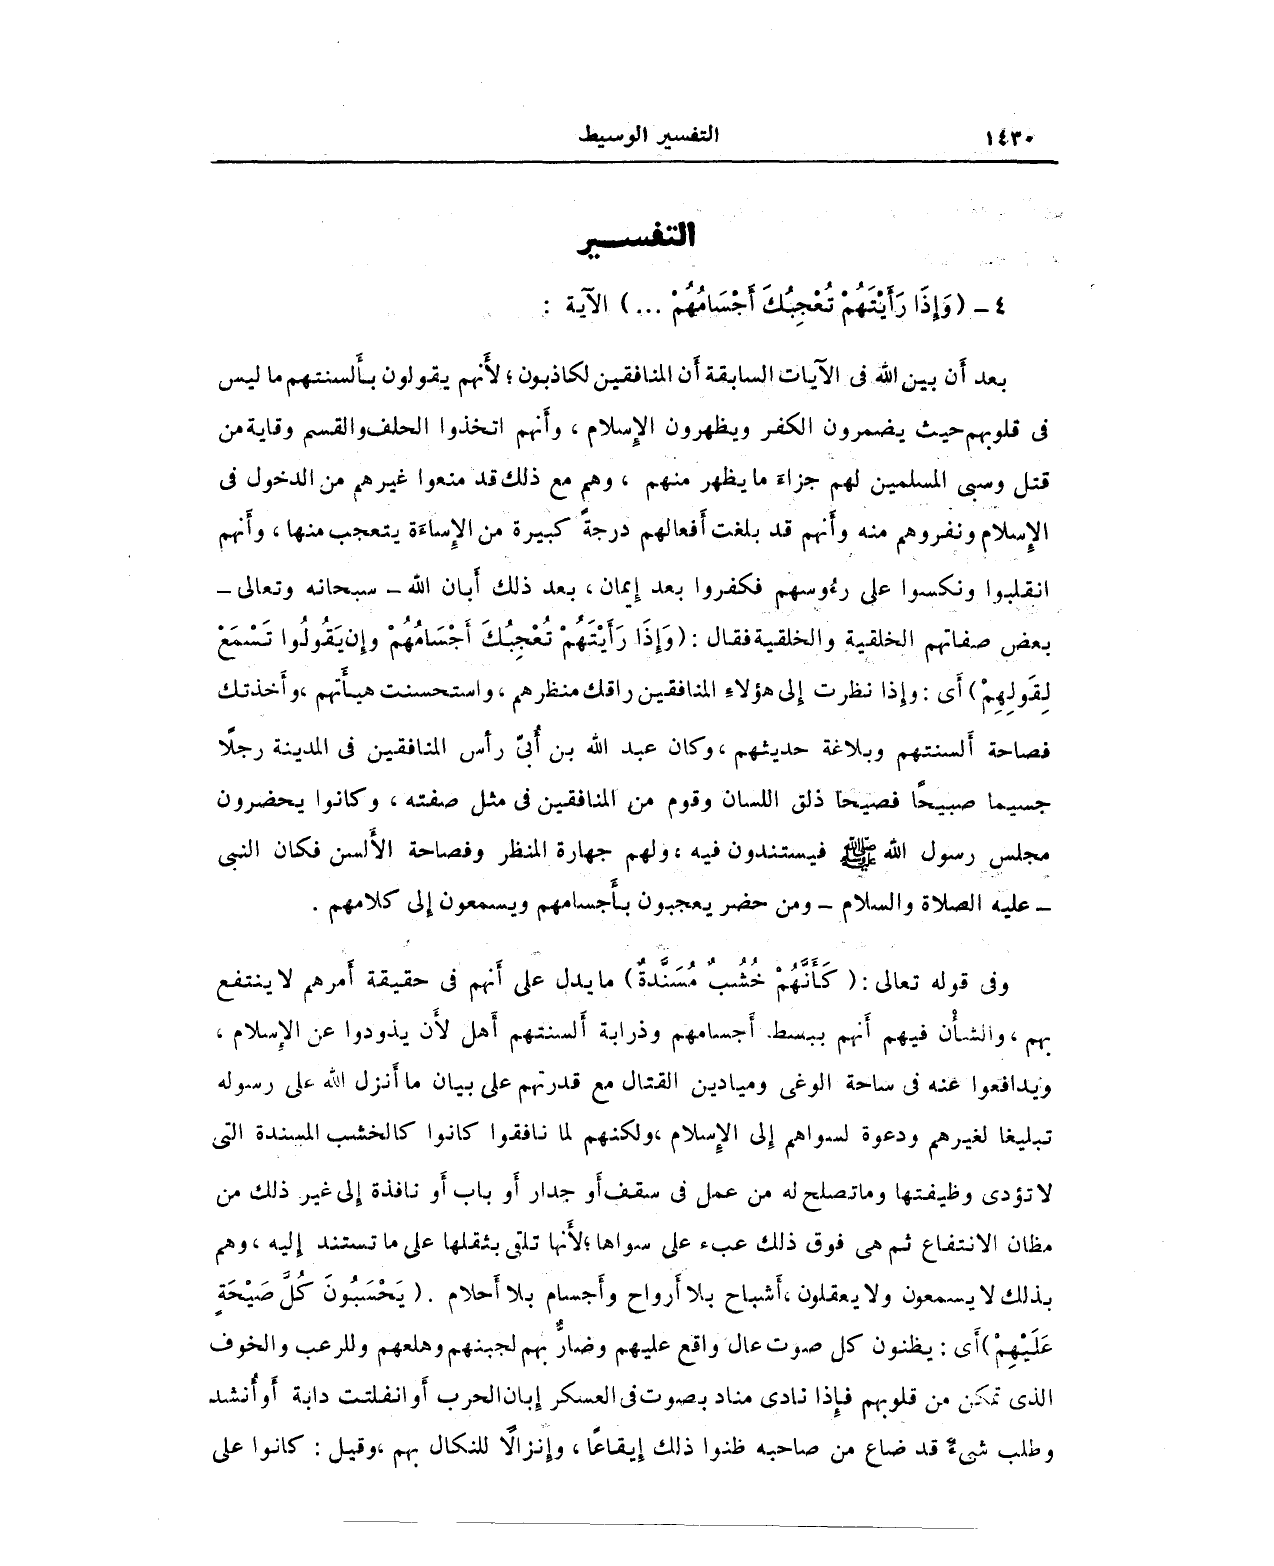 ١٤٣٠ التفسير الوسيط
التفسير
٤ ـ (وَإِذَا رَأَيْتَهُمْ تُعْجِبُكَ أَجْسَامُهُمْ ...) الآية :
بعد أن بين الله فى الآيات السابقة أن المنافقين لكاذبون ؛ لأنهم يقولون بألسنتهم ما ليس
فى قلوبهم حيث يضمرون الكفر ويظهرون الإسلام ، وأنهم اتخذوا الحلف والقسم وقاية من
قتل وسبى المسلمين لهم جزاءَ ما يظهر منهم ، وهم مع ذلك قد منعوا غيرهم من الدخول فى
الإسلام ونفروهم منه وأنهم قد بلغت أفعالهم درجةً كبيرة من الإساءَة يتعجب منها ، وأنهم
انقلبوا ونكسوا على رءُوسهم فكفروا بعد إيمان ، بعد ذلك أبان الله ـ سبحانه وتعالى ـ
بعض صفاتهم الخلقية والخلقية فقال : (وَإِذَا رَأَيْتَهُمْ تُعْجِبُكَ أَجْسَامُهُمْ وإِن يَقُولُوا تَسْمَعْ
لِقَولِهِمْ) أى : وإذا نظرت إلى هؤلاءِ المنافقين راقك منظرهم ، واستحسنت هيأتهم ، وأخذتك
فصاحة ألسنتهم وبلاغة حديثهم ، وكان عبد الله بن أُبىّ رأس المنافقين فى المدينة رجلًا
جسيما صبيحًا فصيحا ذلق اللسان وقوم من المنافقين فى مثل صفته ، وكانوا يحضرون
مجلس رسول الله ﷺ فيستندون فيه ، ولهم جهارة المنظر وفصاحة الألسن فكان النبى
ـ عليه الصلاة والسلام ـ ومن حضر يعجبون بأجسامهم ويسمعون إلى كلامهم .
وفى قوله تعالى : ( كَأَنَّهُمْ خُشُبٌ مُسَنَّدةٌ ) ما يدل على أنهم فى حقيقة أمرهم لا ينتفع
بهم ، والشأْن فيهم أنهم ببسط أجسامهم وذرابة ألسنتهم أهل لأن يذودوا عن الإسلام ،
ويدافعوا عنه فى ساحة الوغى وميادين القتال مع قدرتهم على بيان ما أنزل الله على رسوله
تبليغا لغيرهم ودعوة لسواهم إلى الإسلام ، ولكنهم لما نافقوا كانوا كالخشب المسندة التى
لا تؤدى وظيفتها وما تصلح له من عمل فى سقف أو جدار أو باب أو نافذة إلى غير ذلك من
مظان الانتفاع ثم هى فوق ذلك عبء على سواها ؛ لأنها تلقى بثقلها على ما تستند إليه ، وهم
بذلك لا يسمعون ولا يعقلون ، أشباح بلا أرواح وأجسام بلا أحلام . ( يَحْسَبُونَ كُلَّ صَيْحَةٍ
عَلَيْهِمْ) أى : يظنون كل صوت عال واقع عليهم وضارٌّ بهم لجبنهم وهلعهم وللرعب والخوف
الذى تمكن من قلوبهم فإذا نادى مناد بصوت فى العسكر إبان الحرب أو انفلتت دابة أو أُنشد
وطلب شىءٌ قد ضاع من صاحبه ظنوا ذلك إيقاعًا ، وإنزالًا للنكال بهم ، وقيل : كانوا على